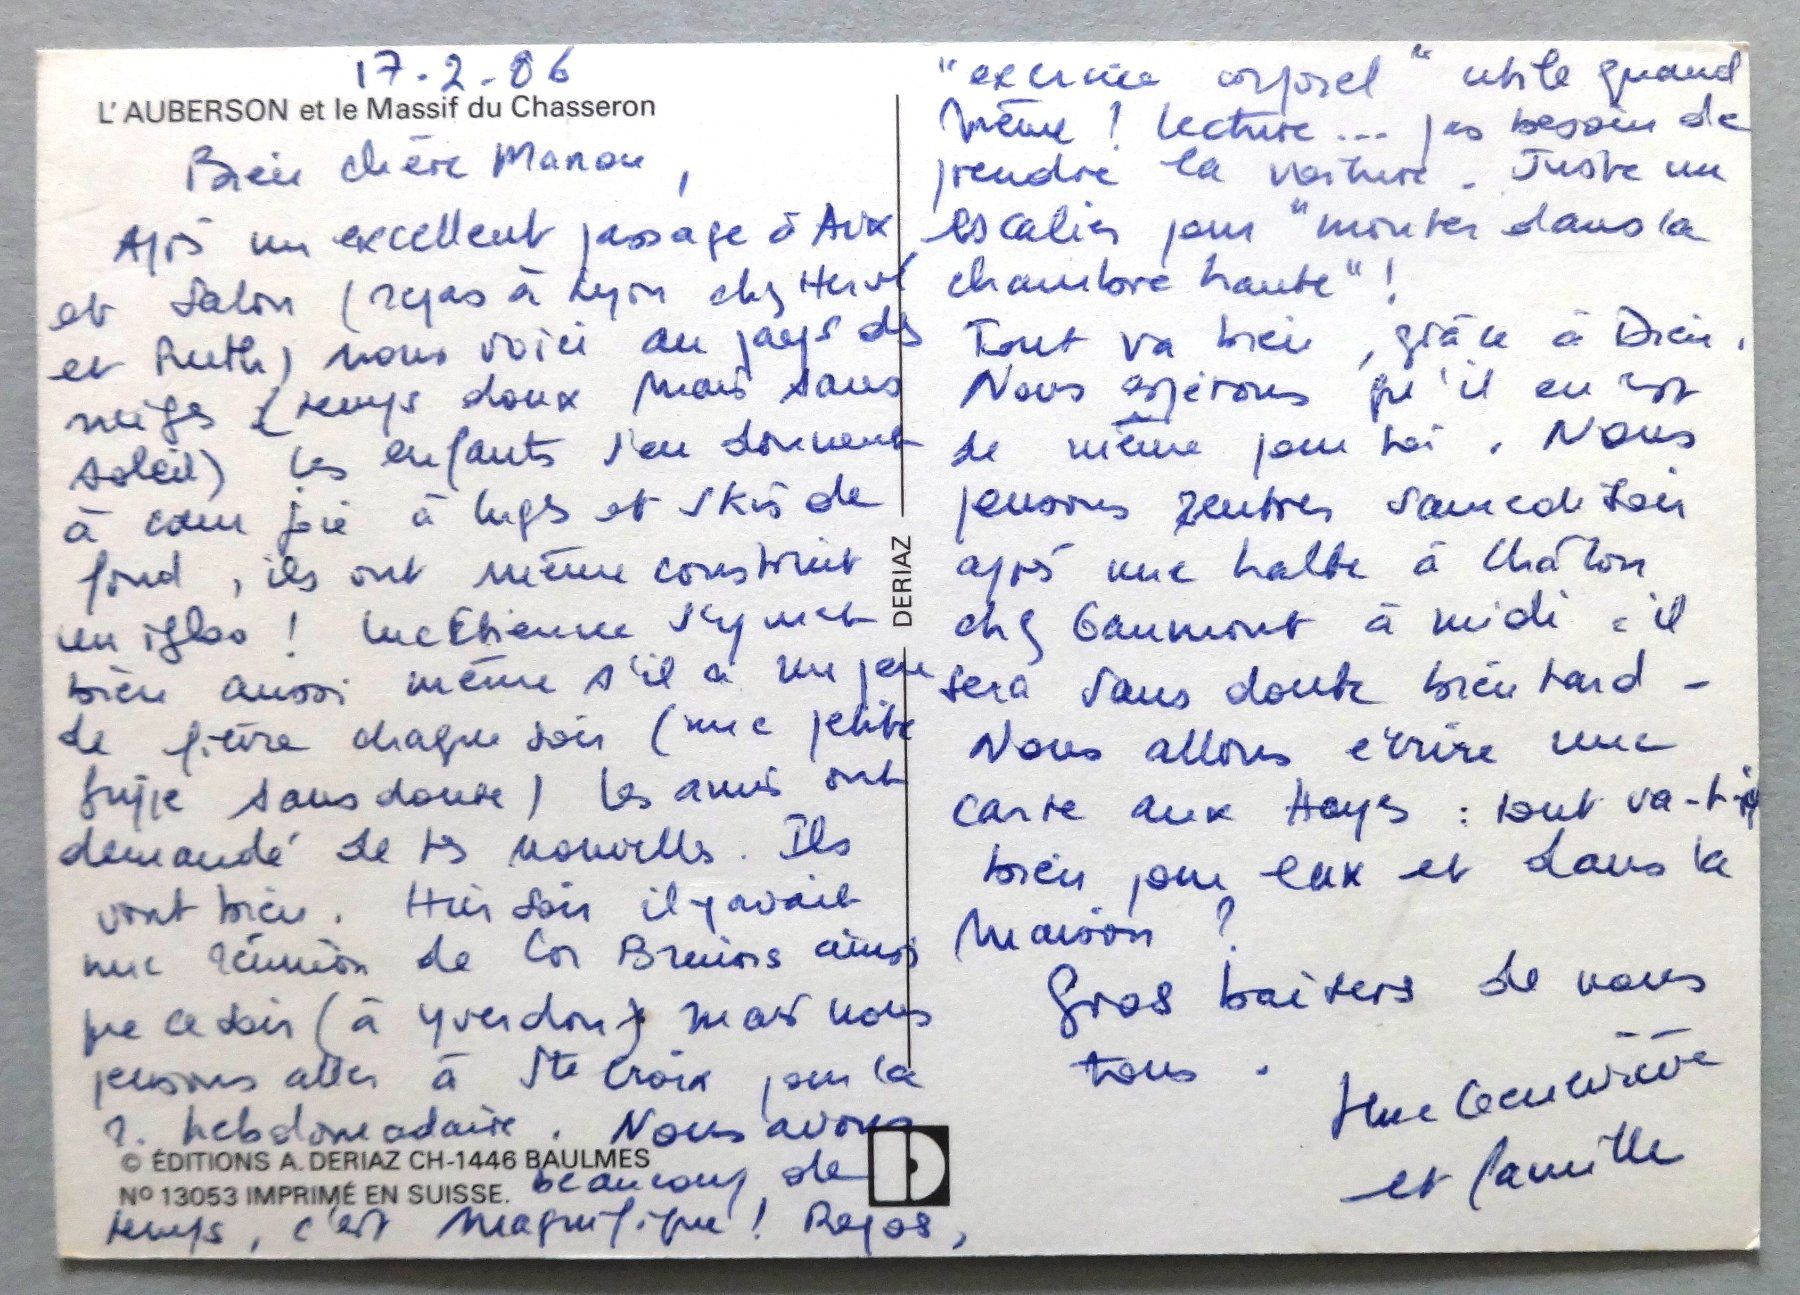 17-2-86
L'AUBERSON et le Massif du Chasseron
Bien chère Manou,
Après un excellent passage à Aix
et Salon (repas à Lyon chez Hervé
et Ruth) nous voici au pays des
neiges (temps doux mais sans
soleil) les enfants s'en donnent
à cœur joie à luges et skis de
fond, ils ont même construit
un igloo ! Luc Etienne s'y met
bien aussi même s'il a un peu
de fièvre chaque soir (une petite
grippe sans doute) les amis ont
demandé de tes nouvelles. Ils
vont bien. Hier soir il y avait
une réunion de Cor Bruins ainsi
que ce soir (à Yverdon) mais nous
pensons aller à Ste Croix pour la
r. hebdomadaire. Nous avons
© ÉDITIONS A. DERIAZ CH-1446 BAULMES
beaucoup de
No 13053 IMPRIMÉ EN SUISSE.
temps, c'est magnifique ! Repos,
DERIAZ
"exercice corporel" utile quand
même ! Lecture... pas besoin de
prendre la voiture. Juste un
escalier pour "monter dans la
chambre haute" !
Tout va bien, grâce à Dieu.
Nous espérons qu'il en est
de même pour toi. Nous
pensons rentrer samedi soir
après une halte à Châlon
chez Gaumont à midi : il
sera sans doute bien tard -
Nous allons écrire une
carte aux Hayes : tout va-t-il
bien pour eux et dans la
maison ?
Gros baisers de nous
tous.
Geneviève
et famille